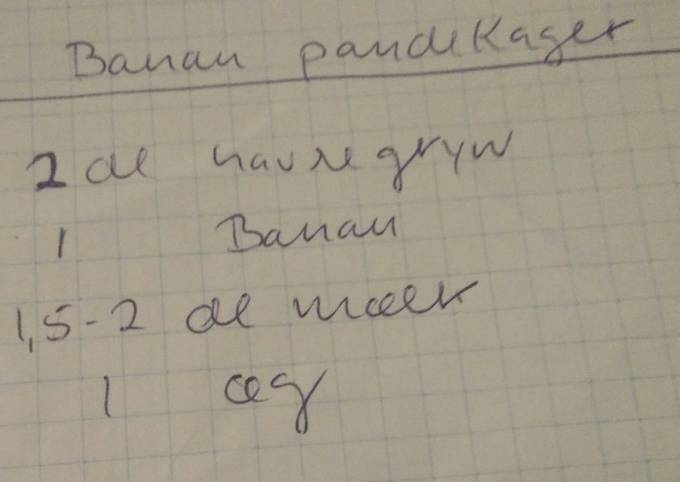 Banan pandekager
2 dl havregryn
1 Banan
1,5-2 dl mælk
1 æg